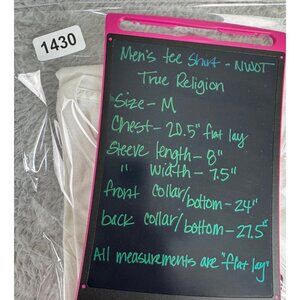 1430
Men's tee shirt - NWOT
True Religion
Size - M
Chest - 20.5" flat lay
Sleeve length - 8"
" width - 7.5"
front collar/bottom - 24"
back collar/bottom - 27.5"
All measurements are "flat lay"